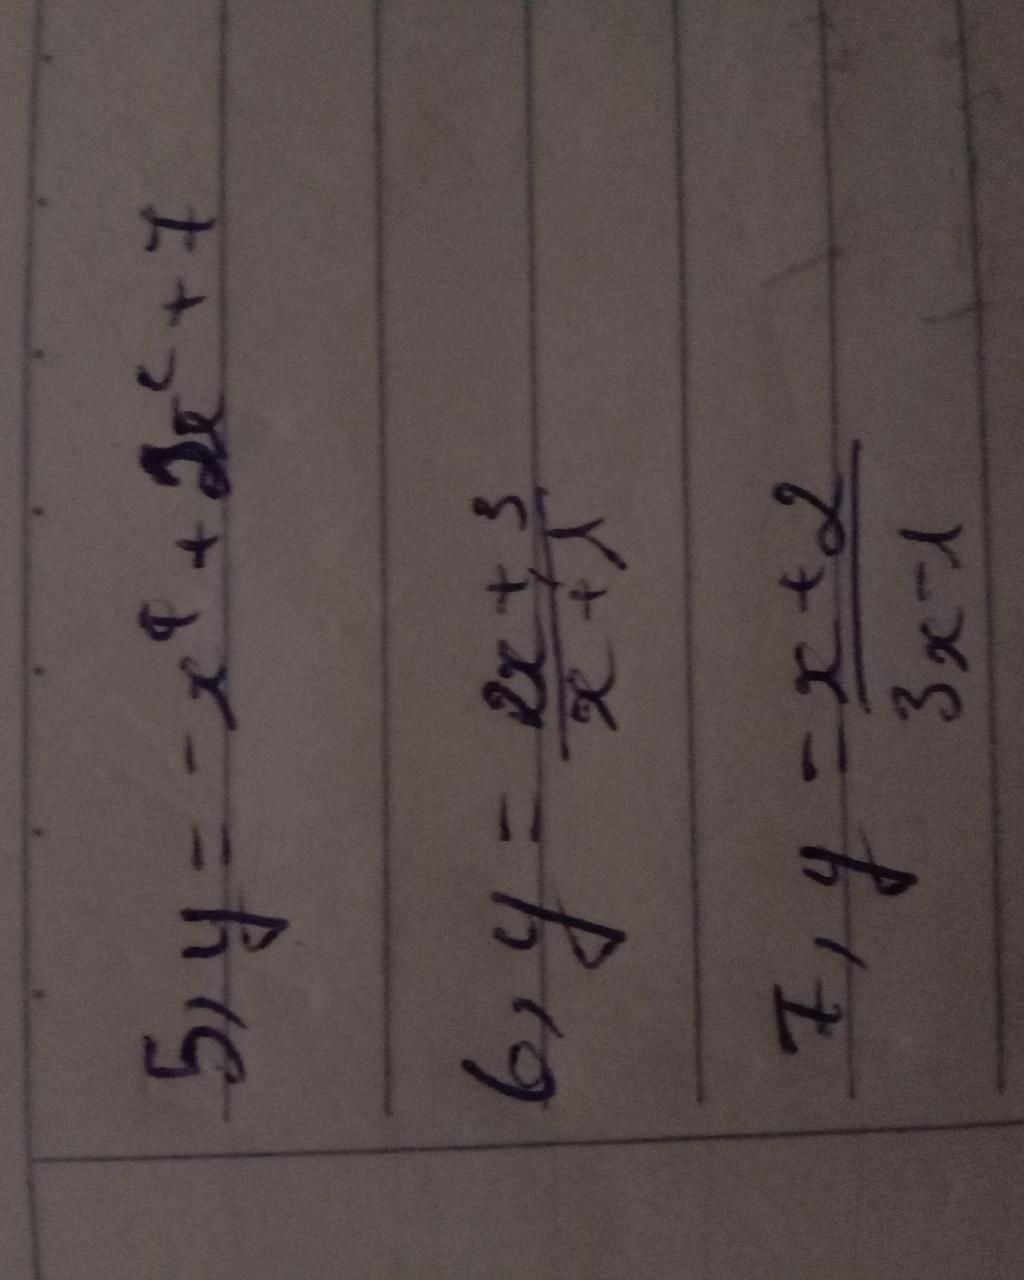 5, y = -x⁴ + 2x² + 7
6, y = (2x + 3)/(x + 1)
7, y = (x + 2)/(3x - 1)